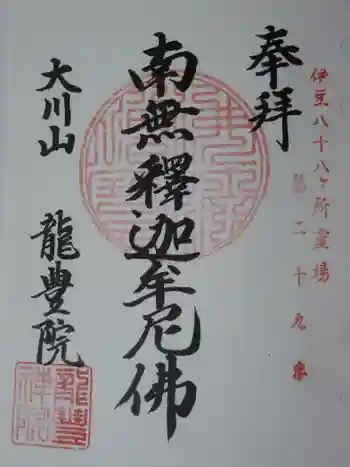 伊豆八十八ヶ所霊場
第二十九番
奉拝
南無釋迦牟尼佛
大川山
龍豊院